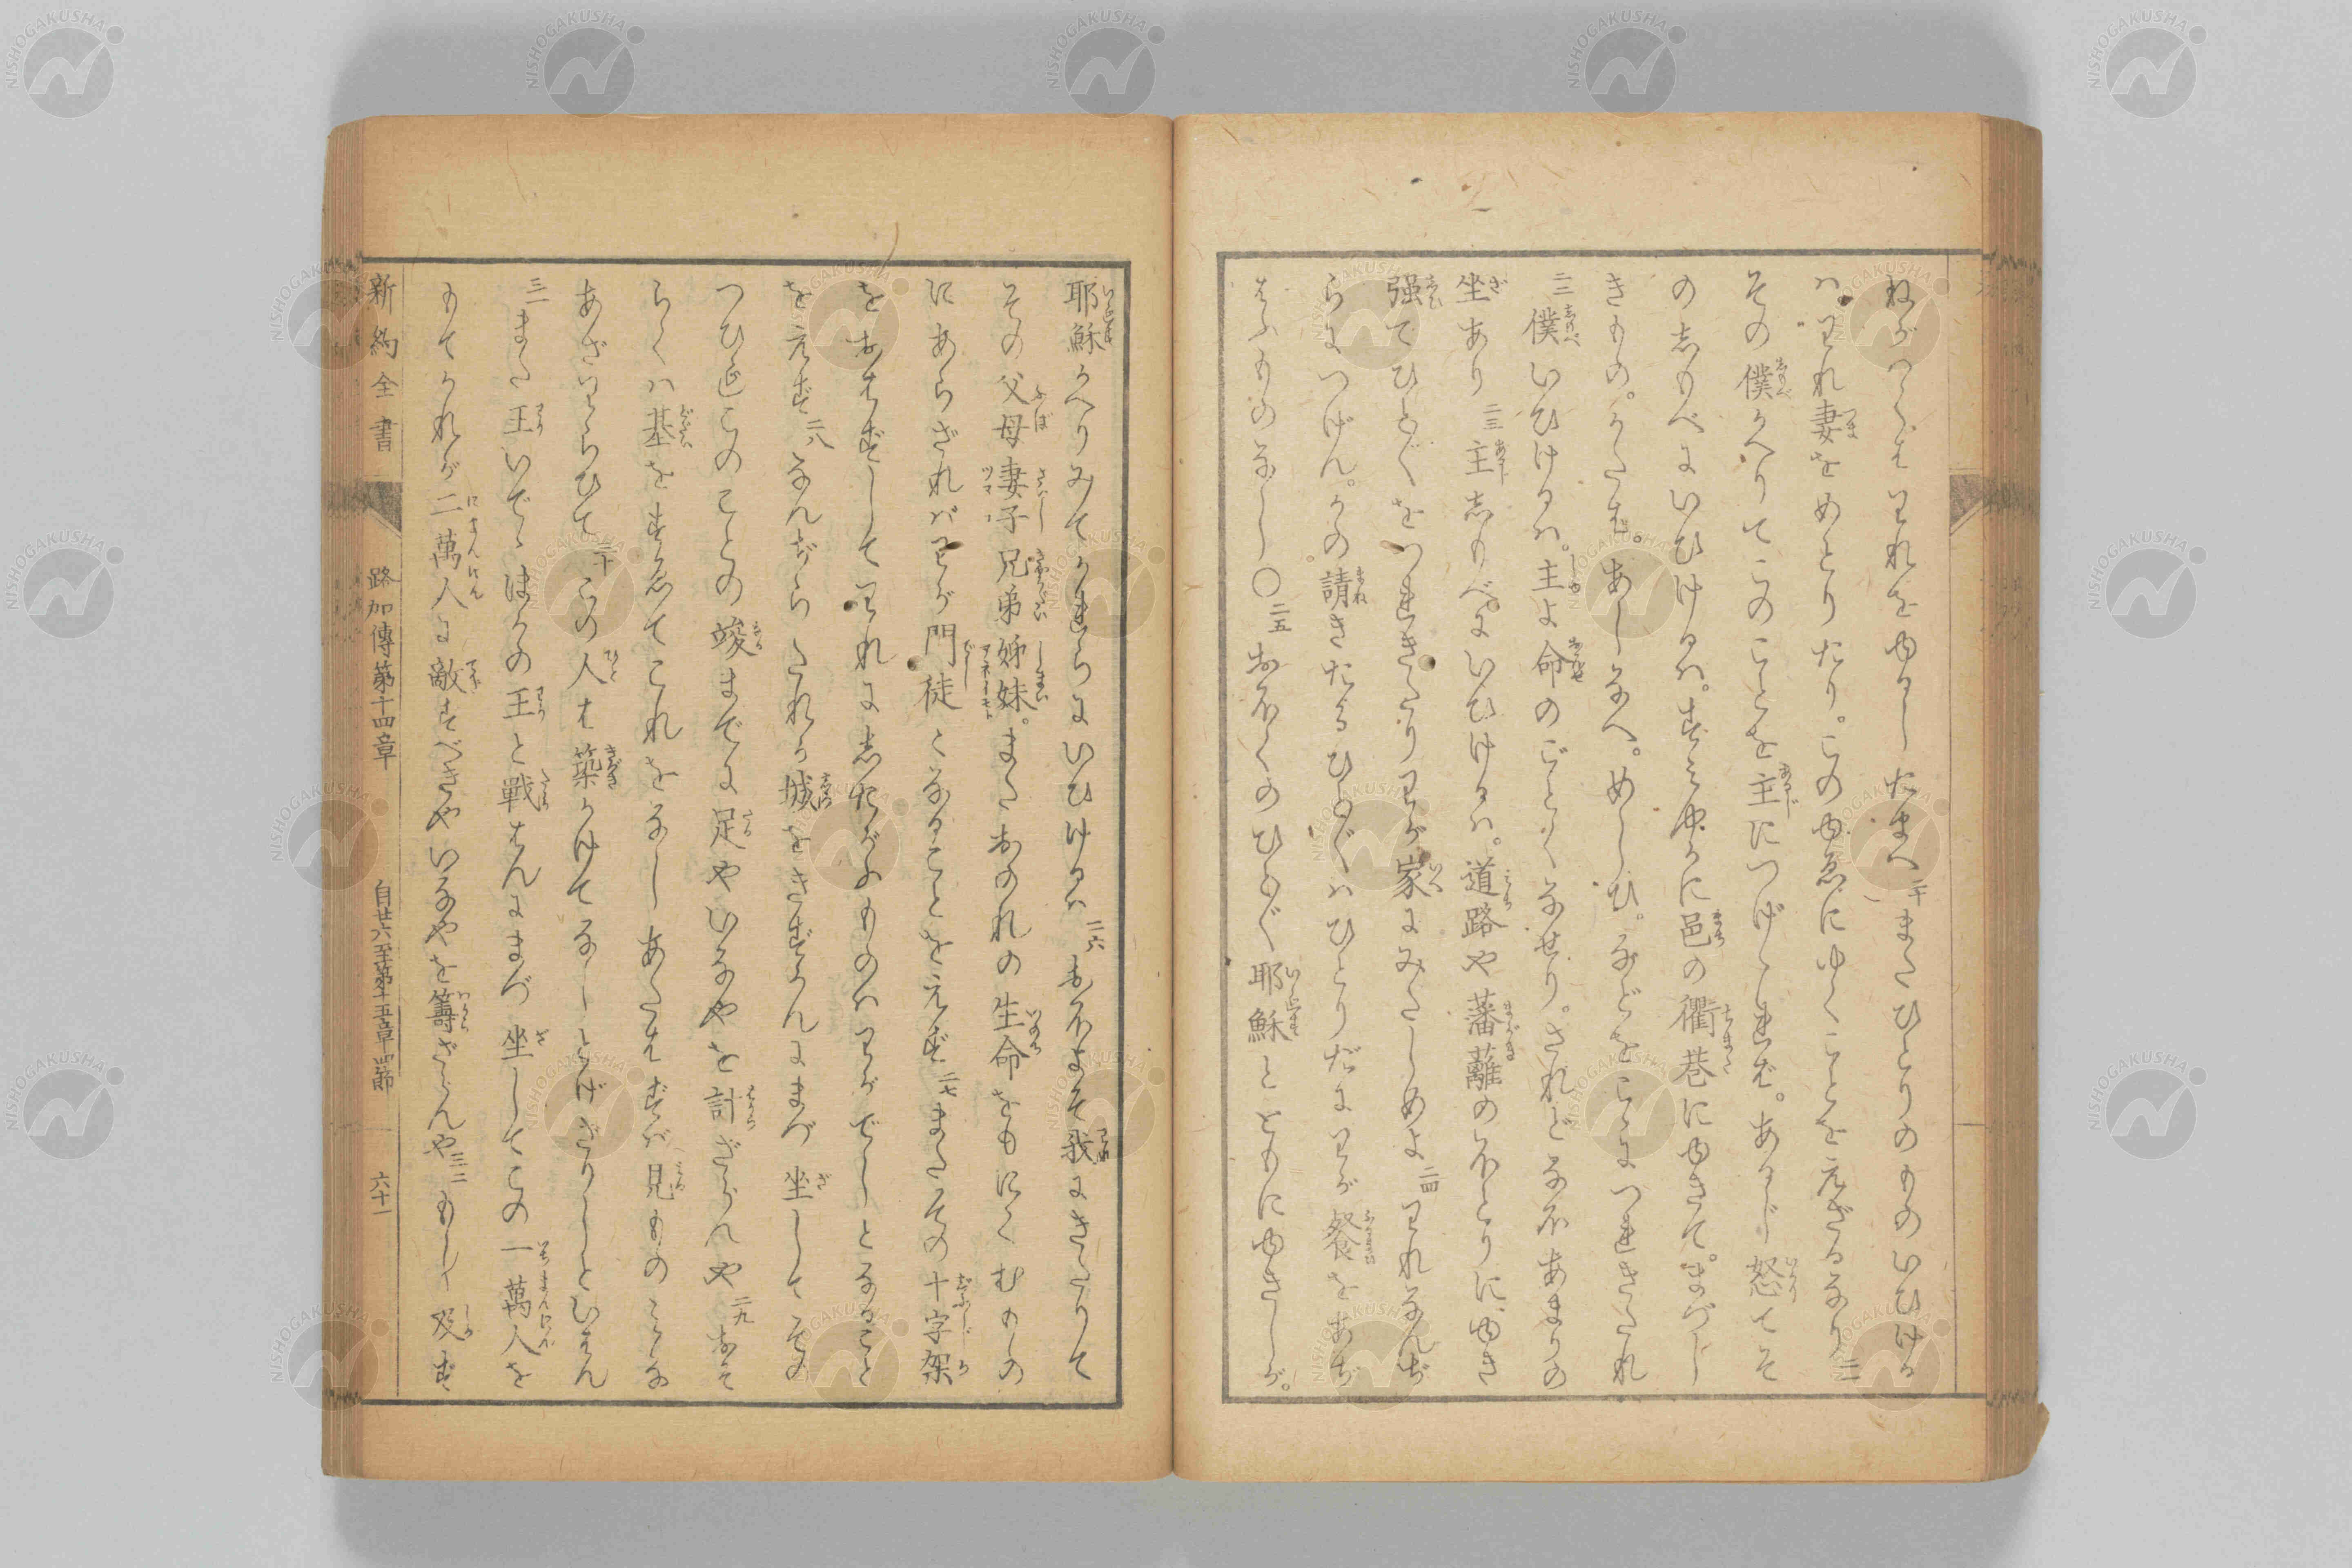 ねがはくはわれをゆるしたまへ二十またひとりのものいひける
ハわれ妻をめとりたり。このゆゑにゆくことを元ざるなり二一
その僕かへりてこのことを主につげゝれば。あるじ怒てそ
のしもべにいひけるハ。すみやかに邑の衢巷にゆきて。まづし
きもの。かたは。あしなへ。めしひ。などをこゝにつれきたれ
二二僕いひけるハ。主よ命のごとくなせり。されどなほあまりの
坐あり二三主しもべにいひけるハ。道路や藩蘺のほとりに、ゆき
强てひとびとをつれきたりわが家にみたしめよ二四われなんぢ
らにつげん。かの請きたるひとびとハひとりだにわが餐をあぢ
はふものなし〇二五おほくのひとびと耶穌とともにゆきしが。
耶穌かへりみてかれらにいひけるハ二六おほよそ我にきたりて
その父母妻子兄弟姊妹。またおのれの生命をもにくむものの
にあらざればわが門徒となることを元ず二七またその十字架
をおはずしてわれにしたがふものハわがでしとなること
を元ず二八なんぢらたれか城をきずかんにまづ坐してその
つひ江このことの竣までに足やいなやを計ざらんや二九おそ
らくハ基をすゑてこれをなしあたはずバ見ものことな
あざわらひて三十この人は築かけてなしとげざりしといはん
三一また王いでゝほかの王と戰はんにまづ坐してこの一萬人を
もてかれが二萬人に敵すべきやいなやを籌ざらんや三二もし及ず
新約全書　路加傳第十四章　自廿六至第十五章四節　六十一